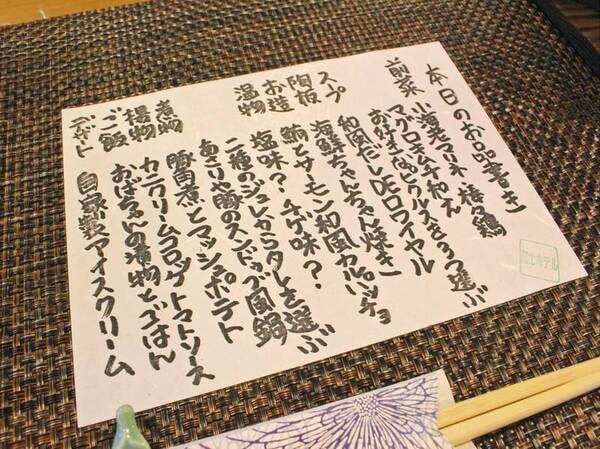 本日のお品書き
前菜 小海老マリネ 棒々鶏
マグロキムチ和え
お好きなピクルスを3つ選ぶ
スープ 和風だしDEロワイヤル
陶板 海鮮ちゃんちゃん焼き
お造 鯛とサーモン和風カルパッチョ
温物 塩味？ チゲ味？
二種のジュレからタレを選ぶ
あさりや豚のスンドゥブ風鍋
煮物 豚角煮とマッシュポテト
揚物 カニクリームコロッケトマトソース
ご飯 おばちゃんの漬物とごはん
デザート 自家製アイスクリーム
ホテル